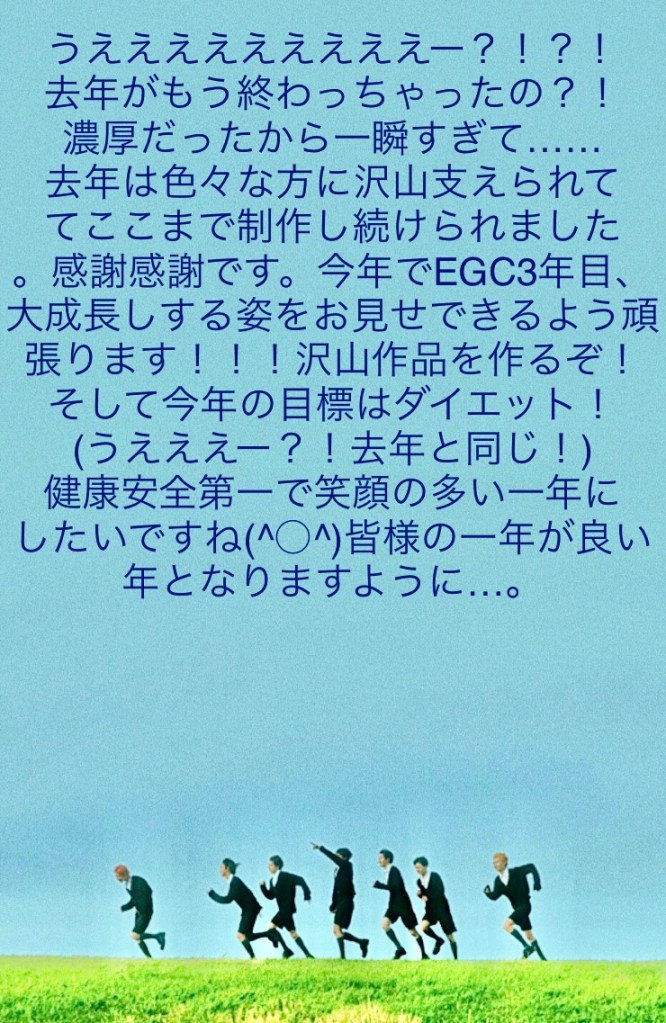 うえええええええええー？！？！
去年がもう終わっちゃったの？！
濃厚だったから一瞬すぎて……
去年は色々な方に沢山支えられて
てここまで制作し続けられました
。感謝感謝です。今年でEGC3年目、
大成長しする姿をお見せできるよう頑
張ります！！！沢山作品を作るぞ！
そして今年の目標はダイエット！
(うえええー？！去年と同じ！)
健康安全第一で笑顔の多い一年に
したいですね(^○^)皆様の一年が良い
年となりますように…。